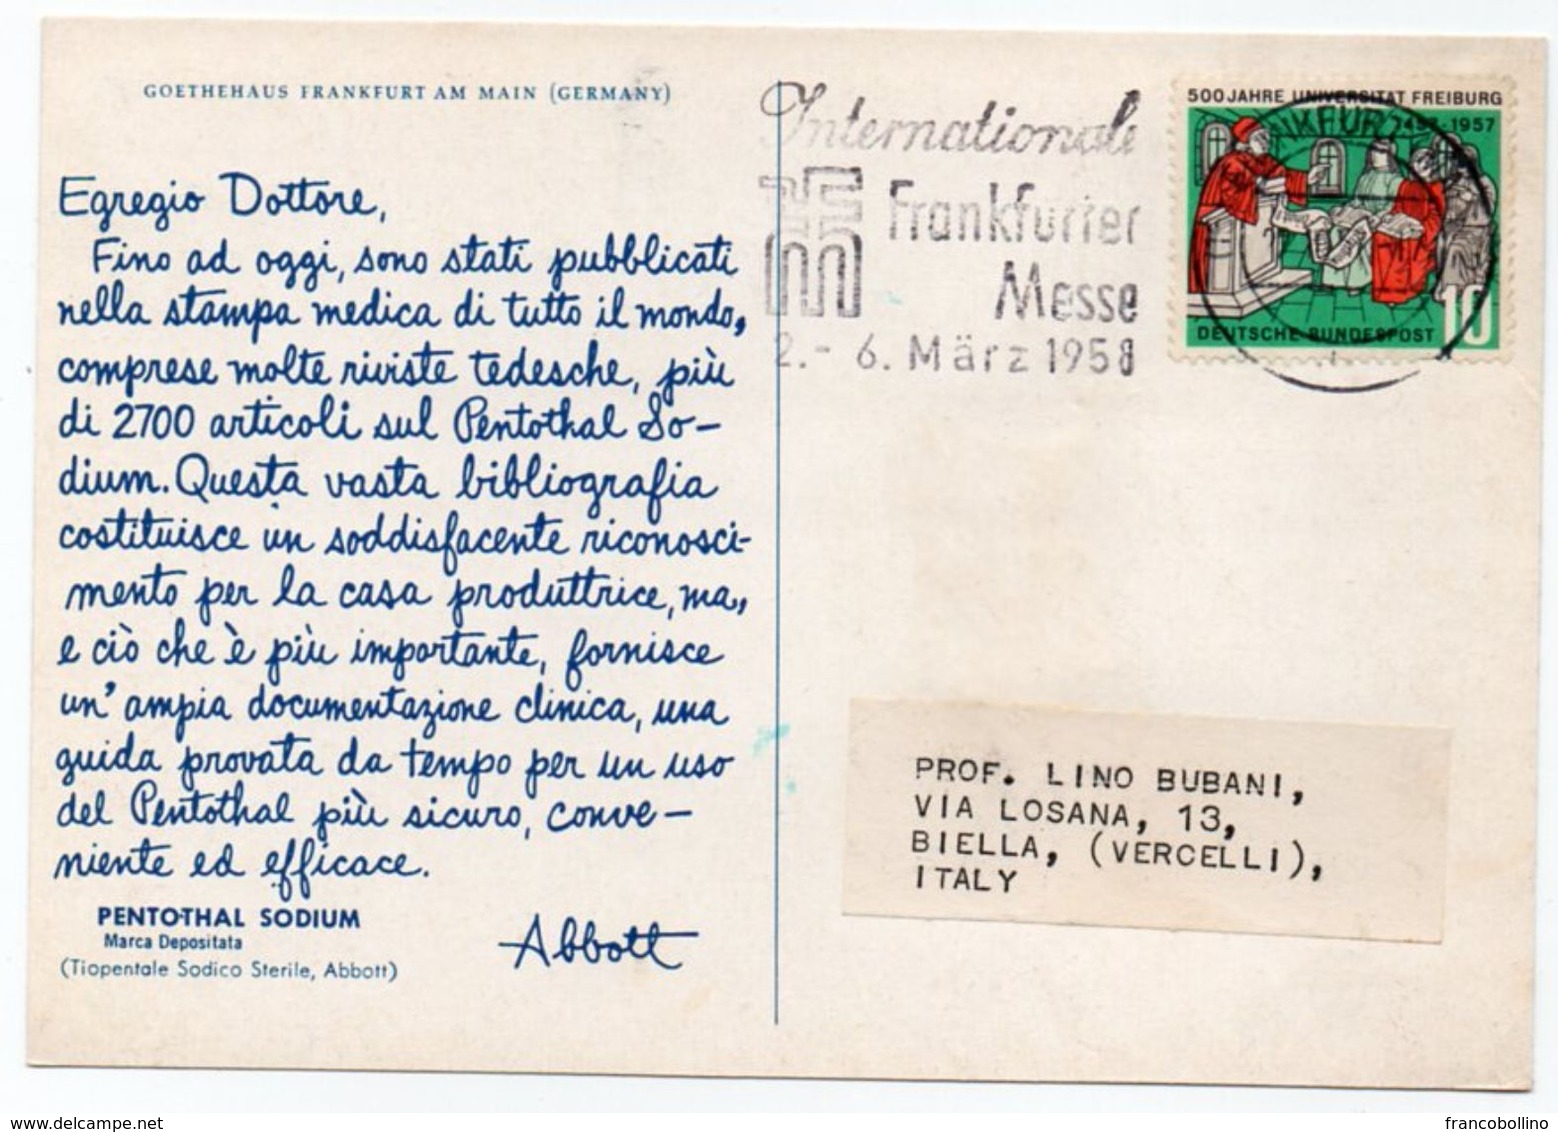 GOETHEHAUS FRANKFURT AM MAIN (GERMANY)
Egregio Dottore,
Fino ad oggi, sono stati pubblicati
nella stampa medica di tutto il mondo,
comprese molte riviste tedesche, più
di 2700 articoli sul Pentothal So-
dium. Questa vasta bibliografia
costituisce un soddisfacente riconosci-
mento per la casa produttrice, ma,
e ciò che è più importante, fornisce
un' ampia documentazione clinica, una
guida provata da tempo per un uso
del Pentothal più sicuro, conve-
niente ed efficace.
PENTOTHAL SODIUM
Marca Depositata
(Tiopentale Sodico Sterile, Abbott)
Abbott
Internationale
Frankfurter
Messe
2.- 6. März 1958
500 JAHRE UNIVERSITAT FREIBURG
1957
DEUTSCHE BUNDESPOST
10
PROF. LINO BUBANI,
VIA LOSANA, 13,
BIELLA, (VERCELLI),
ITALY
francobollino